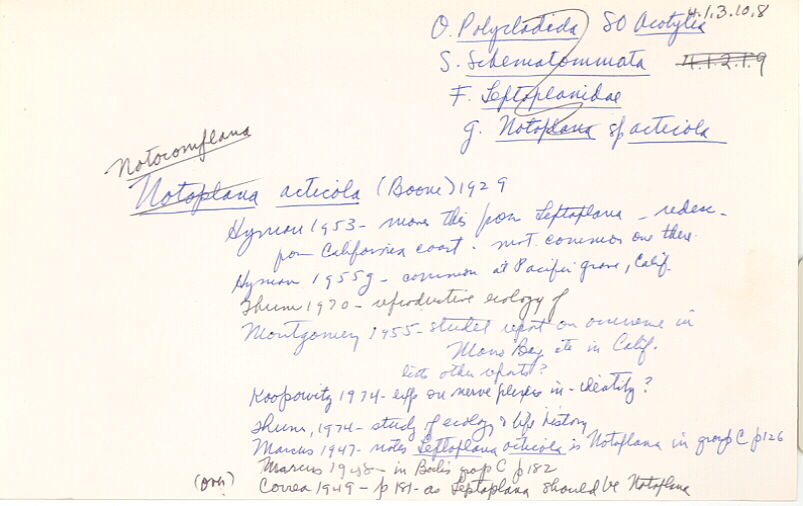 4.1.3.10.8
O. Polycladida SO Acotylea
S. Schematommata 4.1.2.1.9
F. Leptoplanidae
g. Notoplana sp acticola
Notocomplana
Notoplana acticola (Boone) 1929
Hyman 1953 - moves this from Leptoplana - redesc.
from California coast. most common one there.
Hyman 1955g - common at Pacific Grove, Calif.
Thum 1970 - reproductive ecology of
Montgomery 1955 - student report on occurrence in
Morro Bay etc in Calif.
lists other reports?
Koopowitz 1974 - exp on nerve plexus in - identity?
Thum, 1974 - study of ecology & life history
Marcus 1947 - notes Leptoplana acticola is Notoplana in group C p126
Marcus 1948 - in Bock's group C p182
(over) Correa 1949 - p 181 - as Leptoplana should be Notoplana